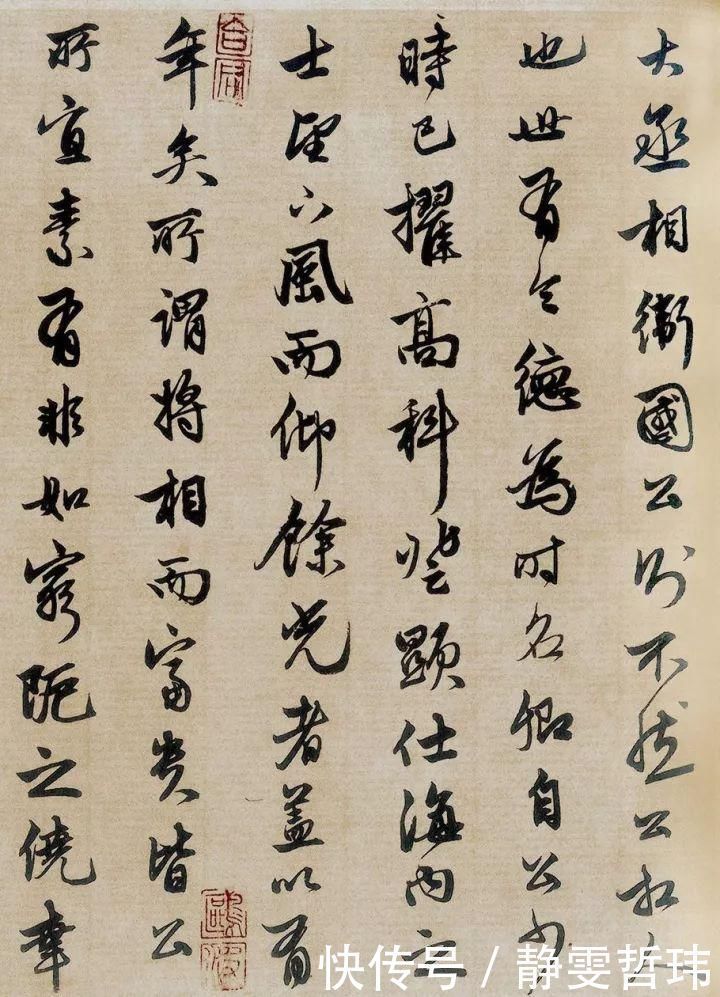 大丞相衛國公則不然公相人
也世有令德為时名卿自公少
時已擢高科登顯仕海内之
士望下風而仰餘光者蓋以有
年矣所謂将相而富贵皆公
所宜素有非如窮阨之僥幸
快传号 / 静雯哲玮